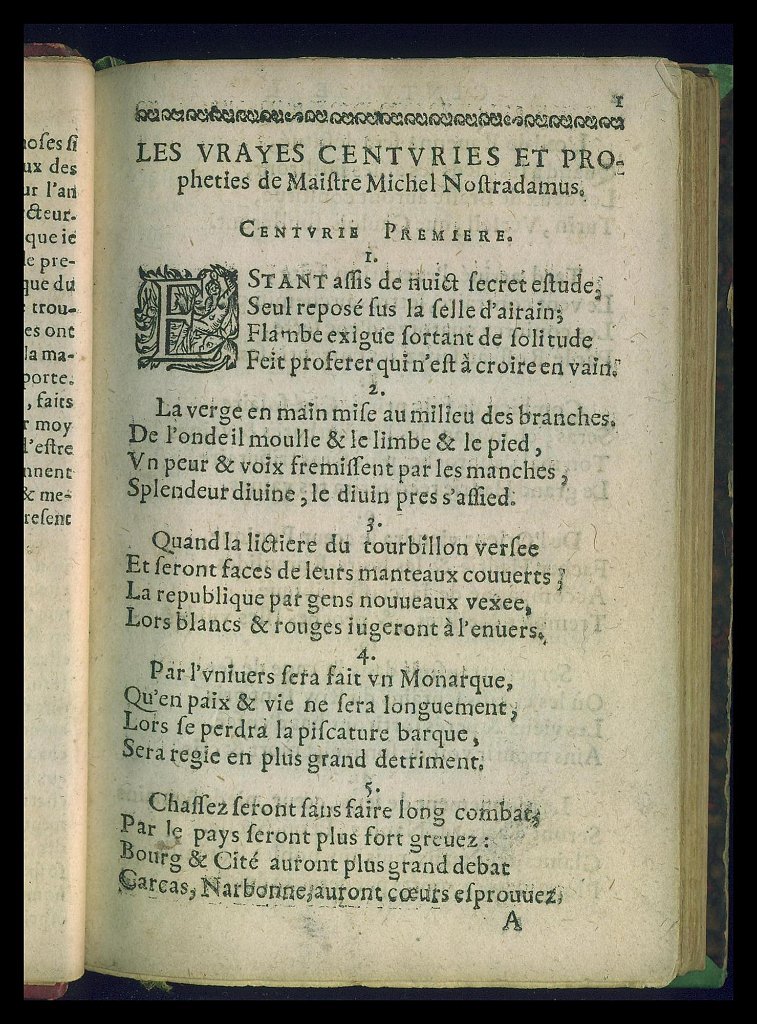 oses si
ux des
ur l'an
cteur.
que ie
e pre-
que du
trou-
es ont
la ma-
porte.
, faits
r moy
l'estre
nnent
& me-
resent
1
LES VRAYES CENTVRIES ET PRO-
pheties de Maiſtre Michel Noſtradamus.
CENTVRIE PREMIERE.
1.
ESTANT aſſis de nuict ſecret eſtude,
Seul repoſé ſus la ſelle d'airain;
Flambe exigue ſortant de ſolitude
Feit proferer qui n'eſt à croire en vain.
2.
La verge en main miſe au milieu des branches.
De l'onde il moulle & le limbe & le pied,
Vn peur & voix fremiſſent par les manches,
Splendeur diuine, le diuin pres s'aſſied.
3.
Quand la lictiere du tourbillon verſee
Et ſeront faces de leurs manteaux couuerts,
La republique par gens nouueaux vexee,
Lors blancs & rouges iugeront à l'enuers.
4.
Par l'vniuers ſera fait vn Monarque,
Qu'en paix & vie ne ſera longuement,
Lors ſe perdra la piſcature barque,
Sera regie en plus grand detriment.
5.
Chaſſez ſeront ſans faire long combat,
Par le pays ſeront plus fort greuez:
Bourg & Cité auront plus grand debat
Carcas, Narbonne, auront cœurs eſprouuez,
A